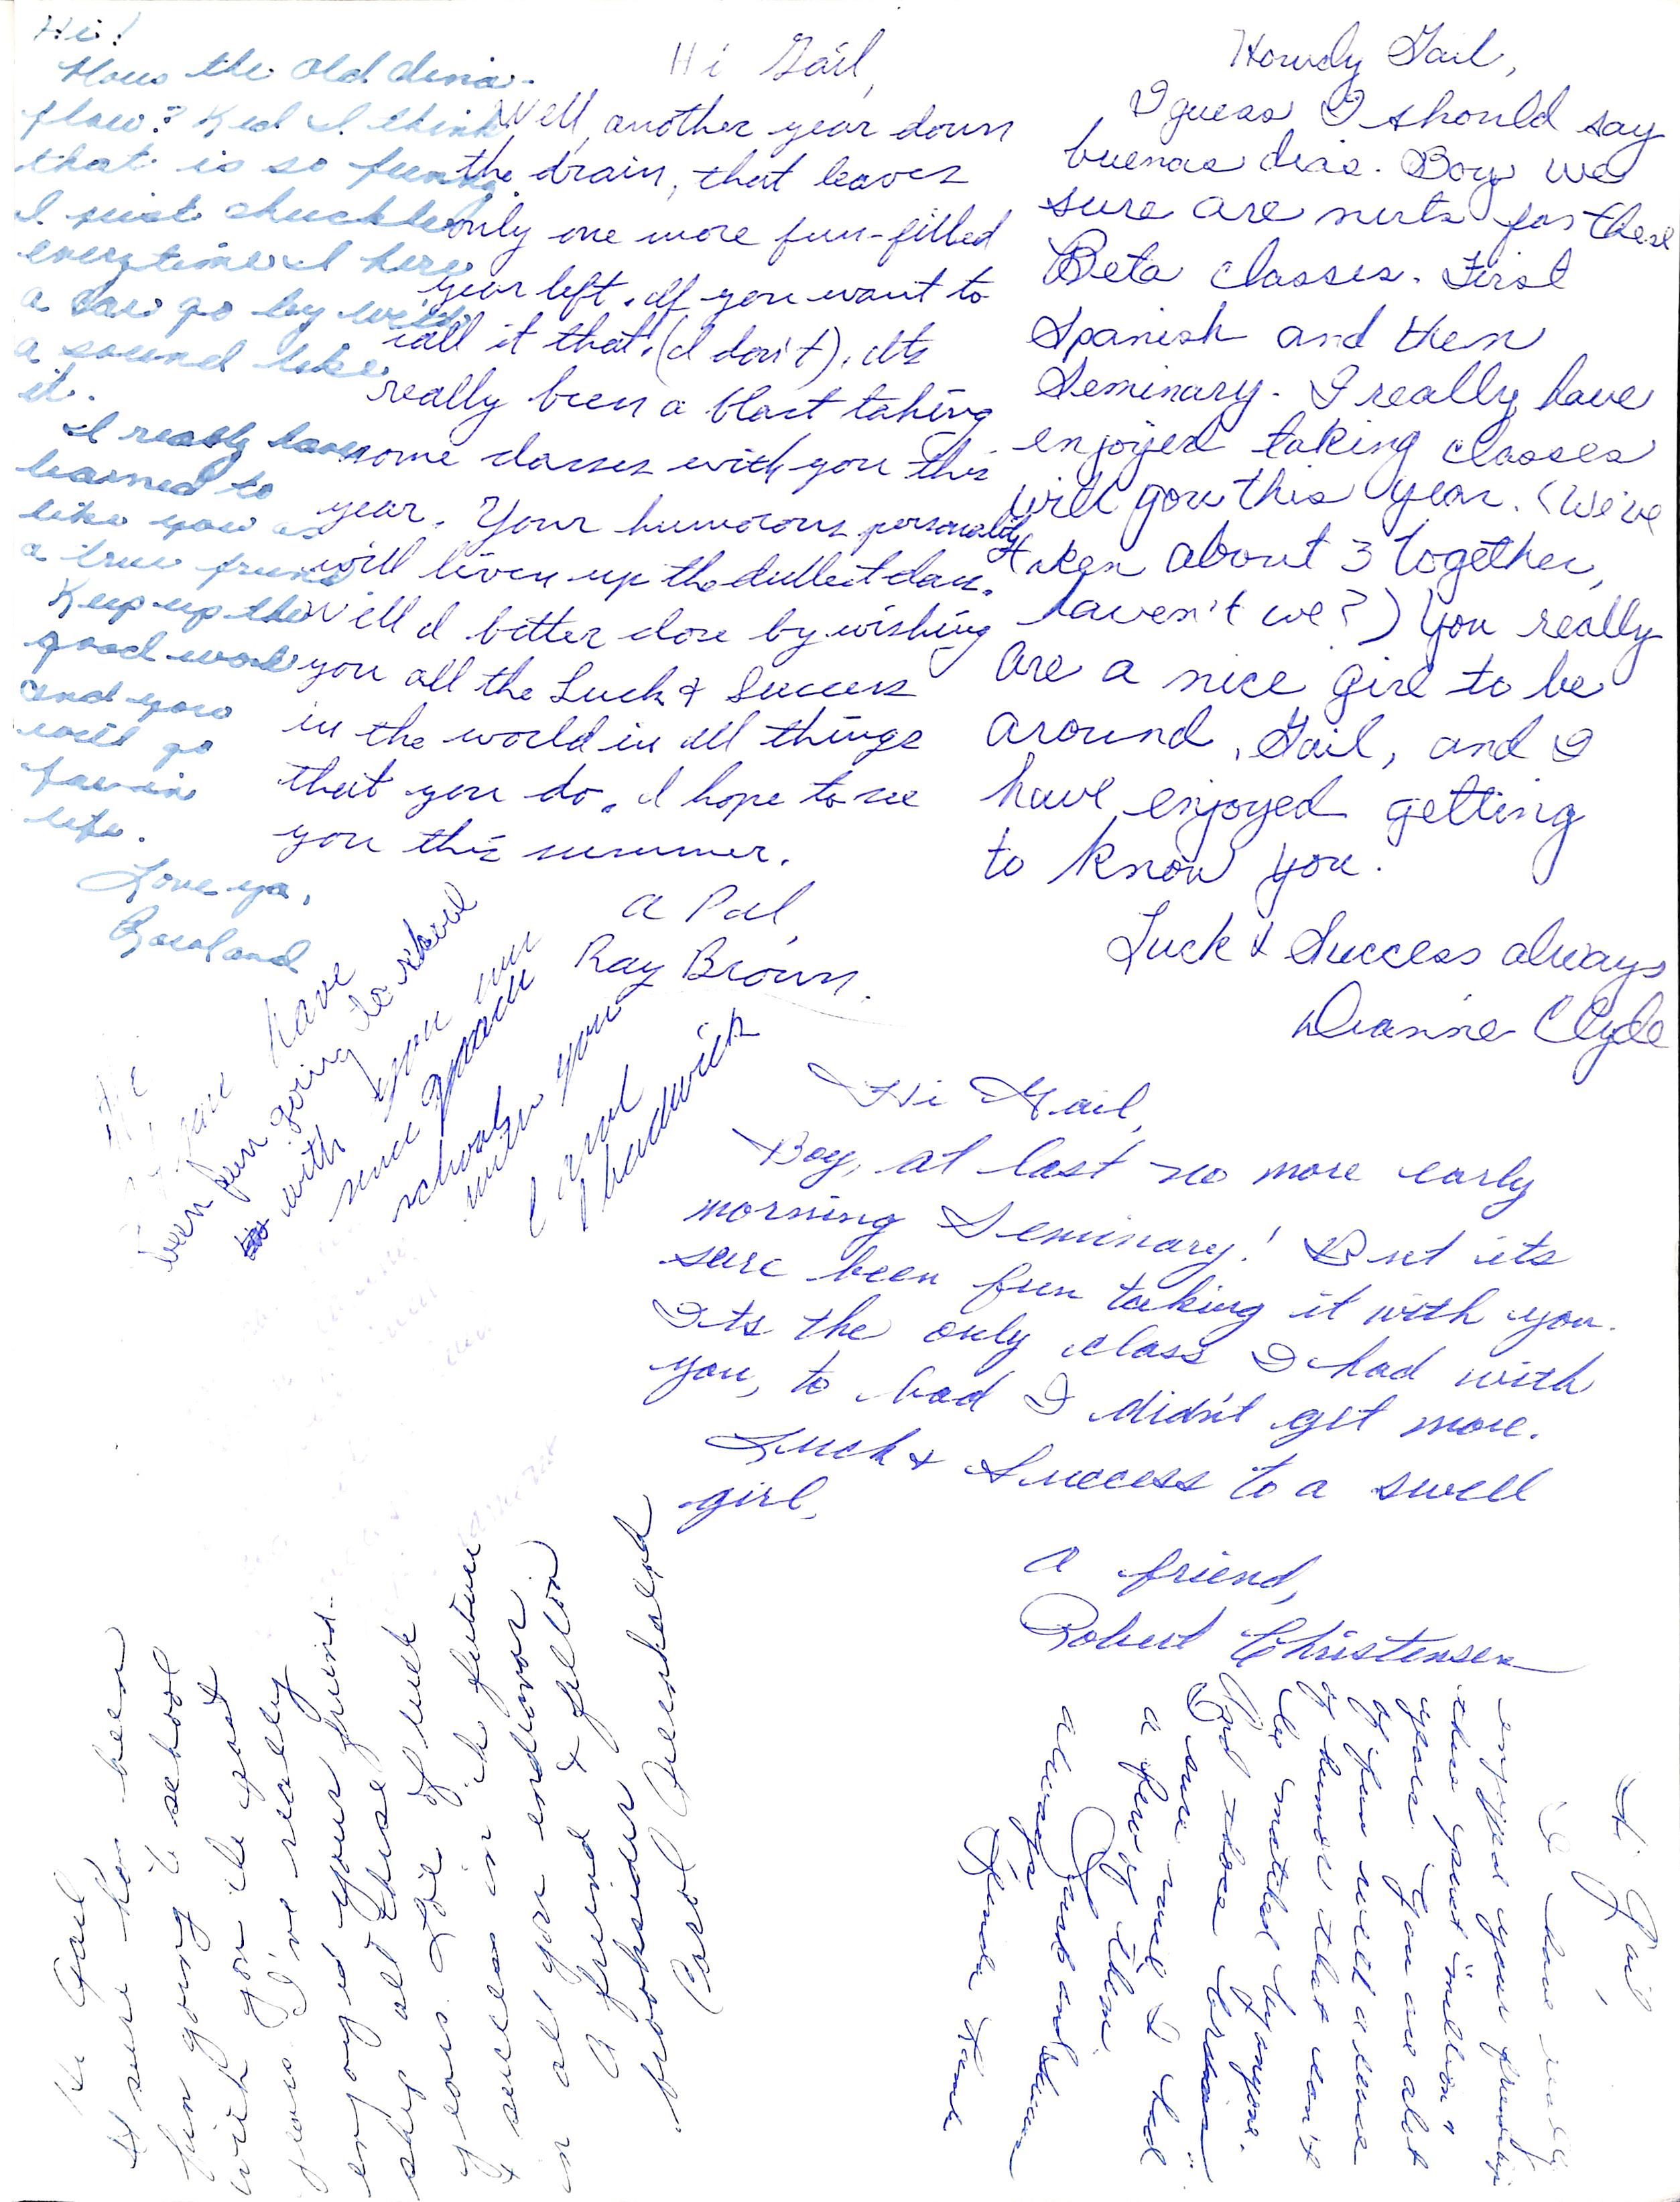 Hi!
Hows the old dina-
flow? Kid I think
that is so funny.
I just chuckle
everytime I here
a car go by with
a sound like
it.
I really have
learned to
like you as
a true friend
Keep up the
good work
and you
will go
far in
life.
Love ya,
Hi Gail,
Well, another year down
the drain, that leaves
only one more fun-filled
year left. If you want to
call it that. (I don't). Its
really been a blast taking
some classes with you this
year. Your humorous personality
will liven up the dullest class.
Well I better close by wishing
you all the Luck & Success
in the world in all things
that you do. I hope to see
you this summer.
a Pal,
Ray Brown.
Howdy Gail,
I guess I should say
buenas dias. Boy we
sure are nuts for these
Beta classes. First
Spanish and then
Seminary. I really have
enjoyed taking classes
with you this year. (We've
taken about 3 together,
haven't we?) You really
are a nice girl to be
around, Gail, and I
have enjoyed getting
to know you.
Luck & Success always
Dianne Clyde
have
been fun going to school
with you
school
with you
Chadwick
Hi Gail,
Boy, at last no more early
morning Seminary! But its
sure been fun taking it with you.
Its the only class I had with
you, to bad I didn't get more.
Luck & Success to a swell
girl,
a friend,
Robert Christensen
Hi Gail
It sure has been
fun going to school
with you the past
years. I've really
enjoyed your friend-
ship all these
years. Lots of luck
& success in the future
in all your endeavors
A friend & fellow
brooksider
Carol
Hi Gail,
I have really
enjoyed your friendship
these past "million"
years. You are a lot
of fun with a sense
of humor that can't
be matched by anyone.
And those
I sure wish I had
a few of them.
always
Linda